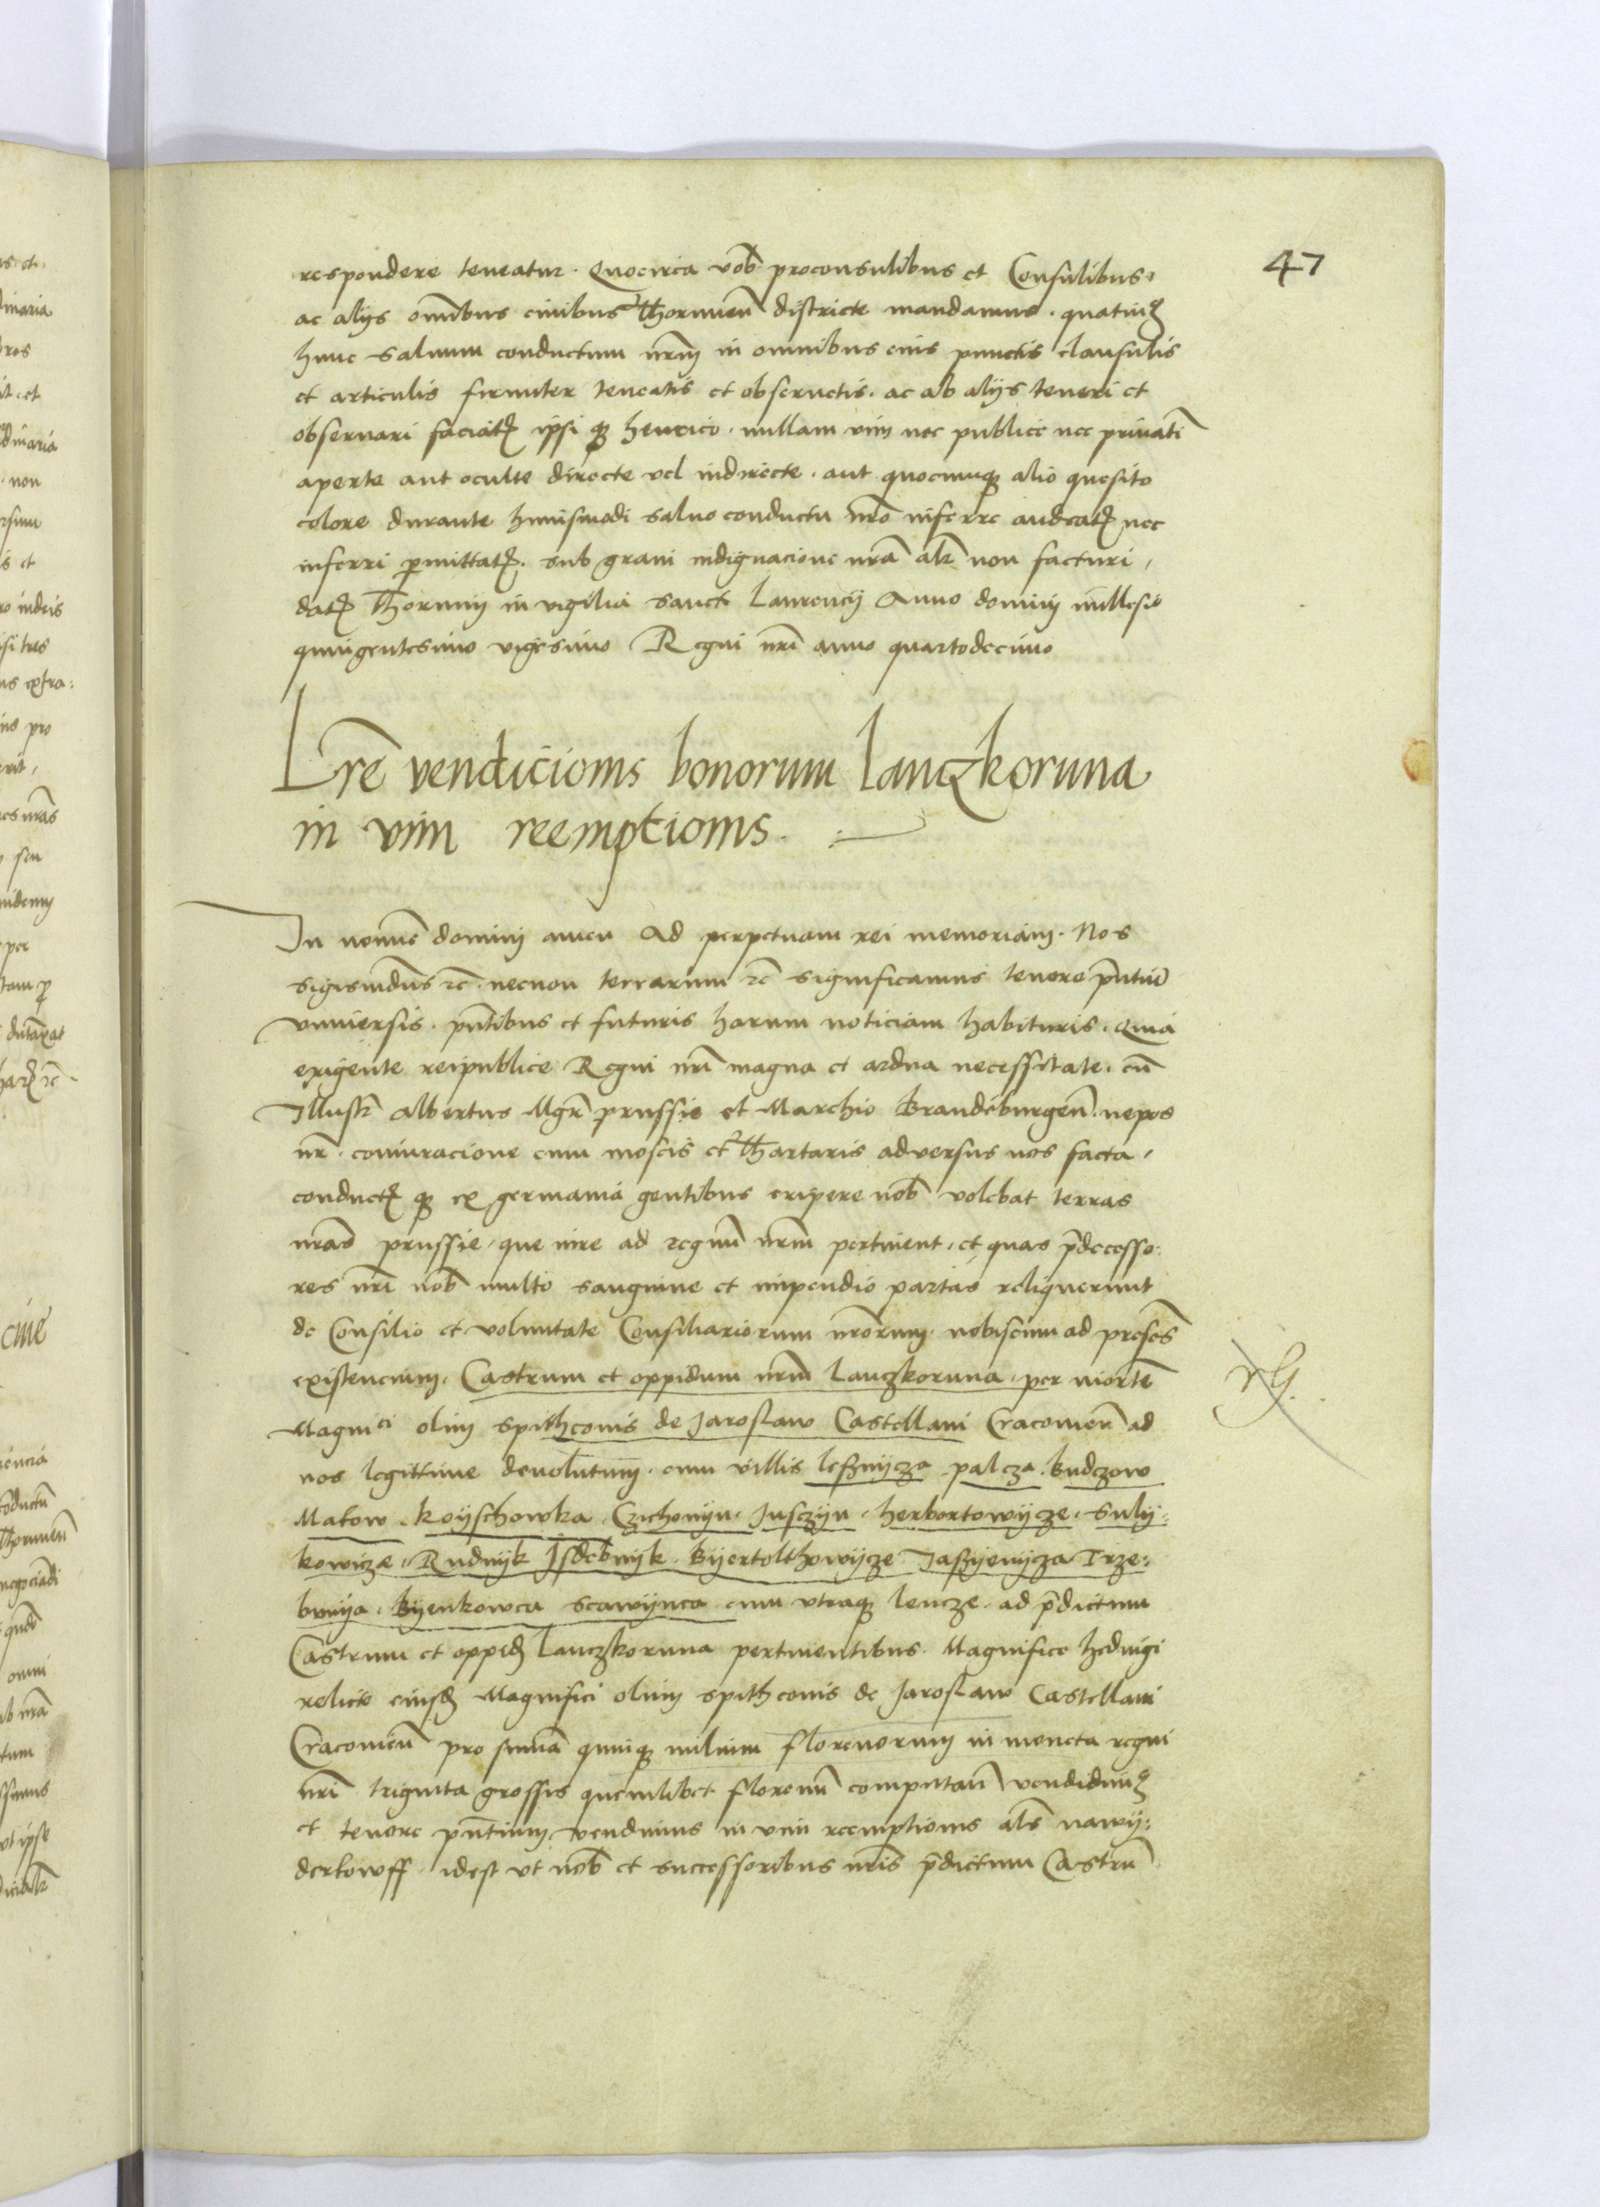 47
respondere teneatur. Quocirca vob proconsulibus et Consulibus.
ac alijs omibus ciuibus Thorunen districte mandamus. quatinq
hunc saluum conductum nrm in omnibus eius punctis clausulis
et articulis firmiter teneatis et obseruetis. ac ab alijs teneri et
obseruari faciat ipsi q henrico. nullam vim nec publice nec priuati
aperte aut oculte directe vel indirecte. aut quocunq alio quesito
colore durante huiusmodi saluo conductu nro inferre audeat nec
inferri pmittat. sub graui indignacione nra alr non facturi,
dat Thorunij in vigilia sancti Laurencij Anno dominj millesio
quingentesimo vigesimo Regni nri anno quartodecimo
Lre vendicionis bonorum lanczkoruna
in vim reemptionis.
In nomine dominj amen Ad perpetuam rei memoriam. Nos
Sigismdus rc. necnon terrarum rc significamus tenore pntiu
vniuersis. pntibus et futuris harum noticiam habituris. Quia
exigente reipublice Regni nri magna et ardua necessitate. cu
Illustr Albertus Mgr prussie et Marchio Brandeburgen. nepos
nr. coniuracione cum moscis et Thartaris adversus nos facta,
conduct q ex germania gentibus eripere nob volebat terras
nras prussie. que iure ad regnu nrm pertinent. et quas pdecesso:
res nri nob multo sanguine et impendio partas reliquerunt
de Consilio et voluntate Consiliariorum nrorum. nobiscum ad preses
existencium. Castrum et oppidum nrm Lanczkoruna. per morte
Magnici olim spithconis de Jaroslaw Castellani Cracouien ad
nos legittime deuolutum. cum villis leßnijcza palcza. Budczow
Makow. koijschowka. Czichonijn. Jusczijn. herbortowijcze. Sulij:
kowicze. Rudnijk Jsdebnijk. Bijertolthowijcze Jaßijenijcza Trze:
bunija. Bijenkowcu scawijnca cum vtraq lencze. ad pdictum
Castrum et oppid Lanczkoruna pertinentibus. Magnifice hedvigi
relicte eiusd Magnifici olim spithconis de Jaroslaw Castellani
Cracouien pro suma quinq milium florenorum in moneta regni
nri triginta grossis quemlibet florenu computan vendidimq
et tenore pntium vendimus in vim reemptionis als nawij:
derkowff. idest vt nob et successoribus nris pdictum Castru